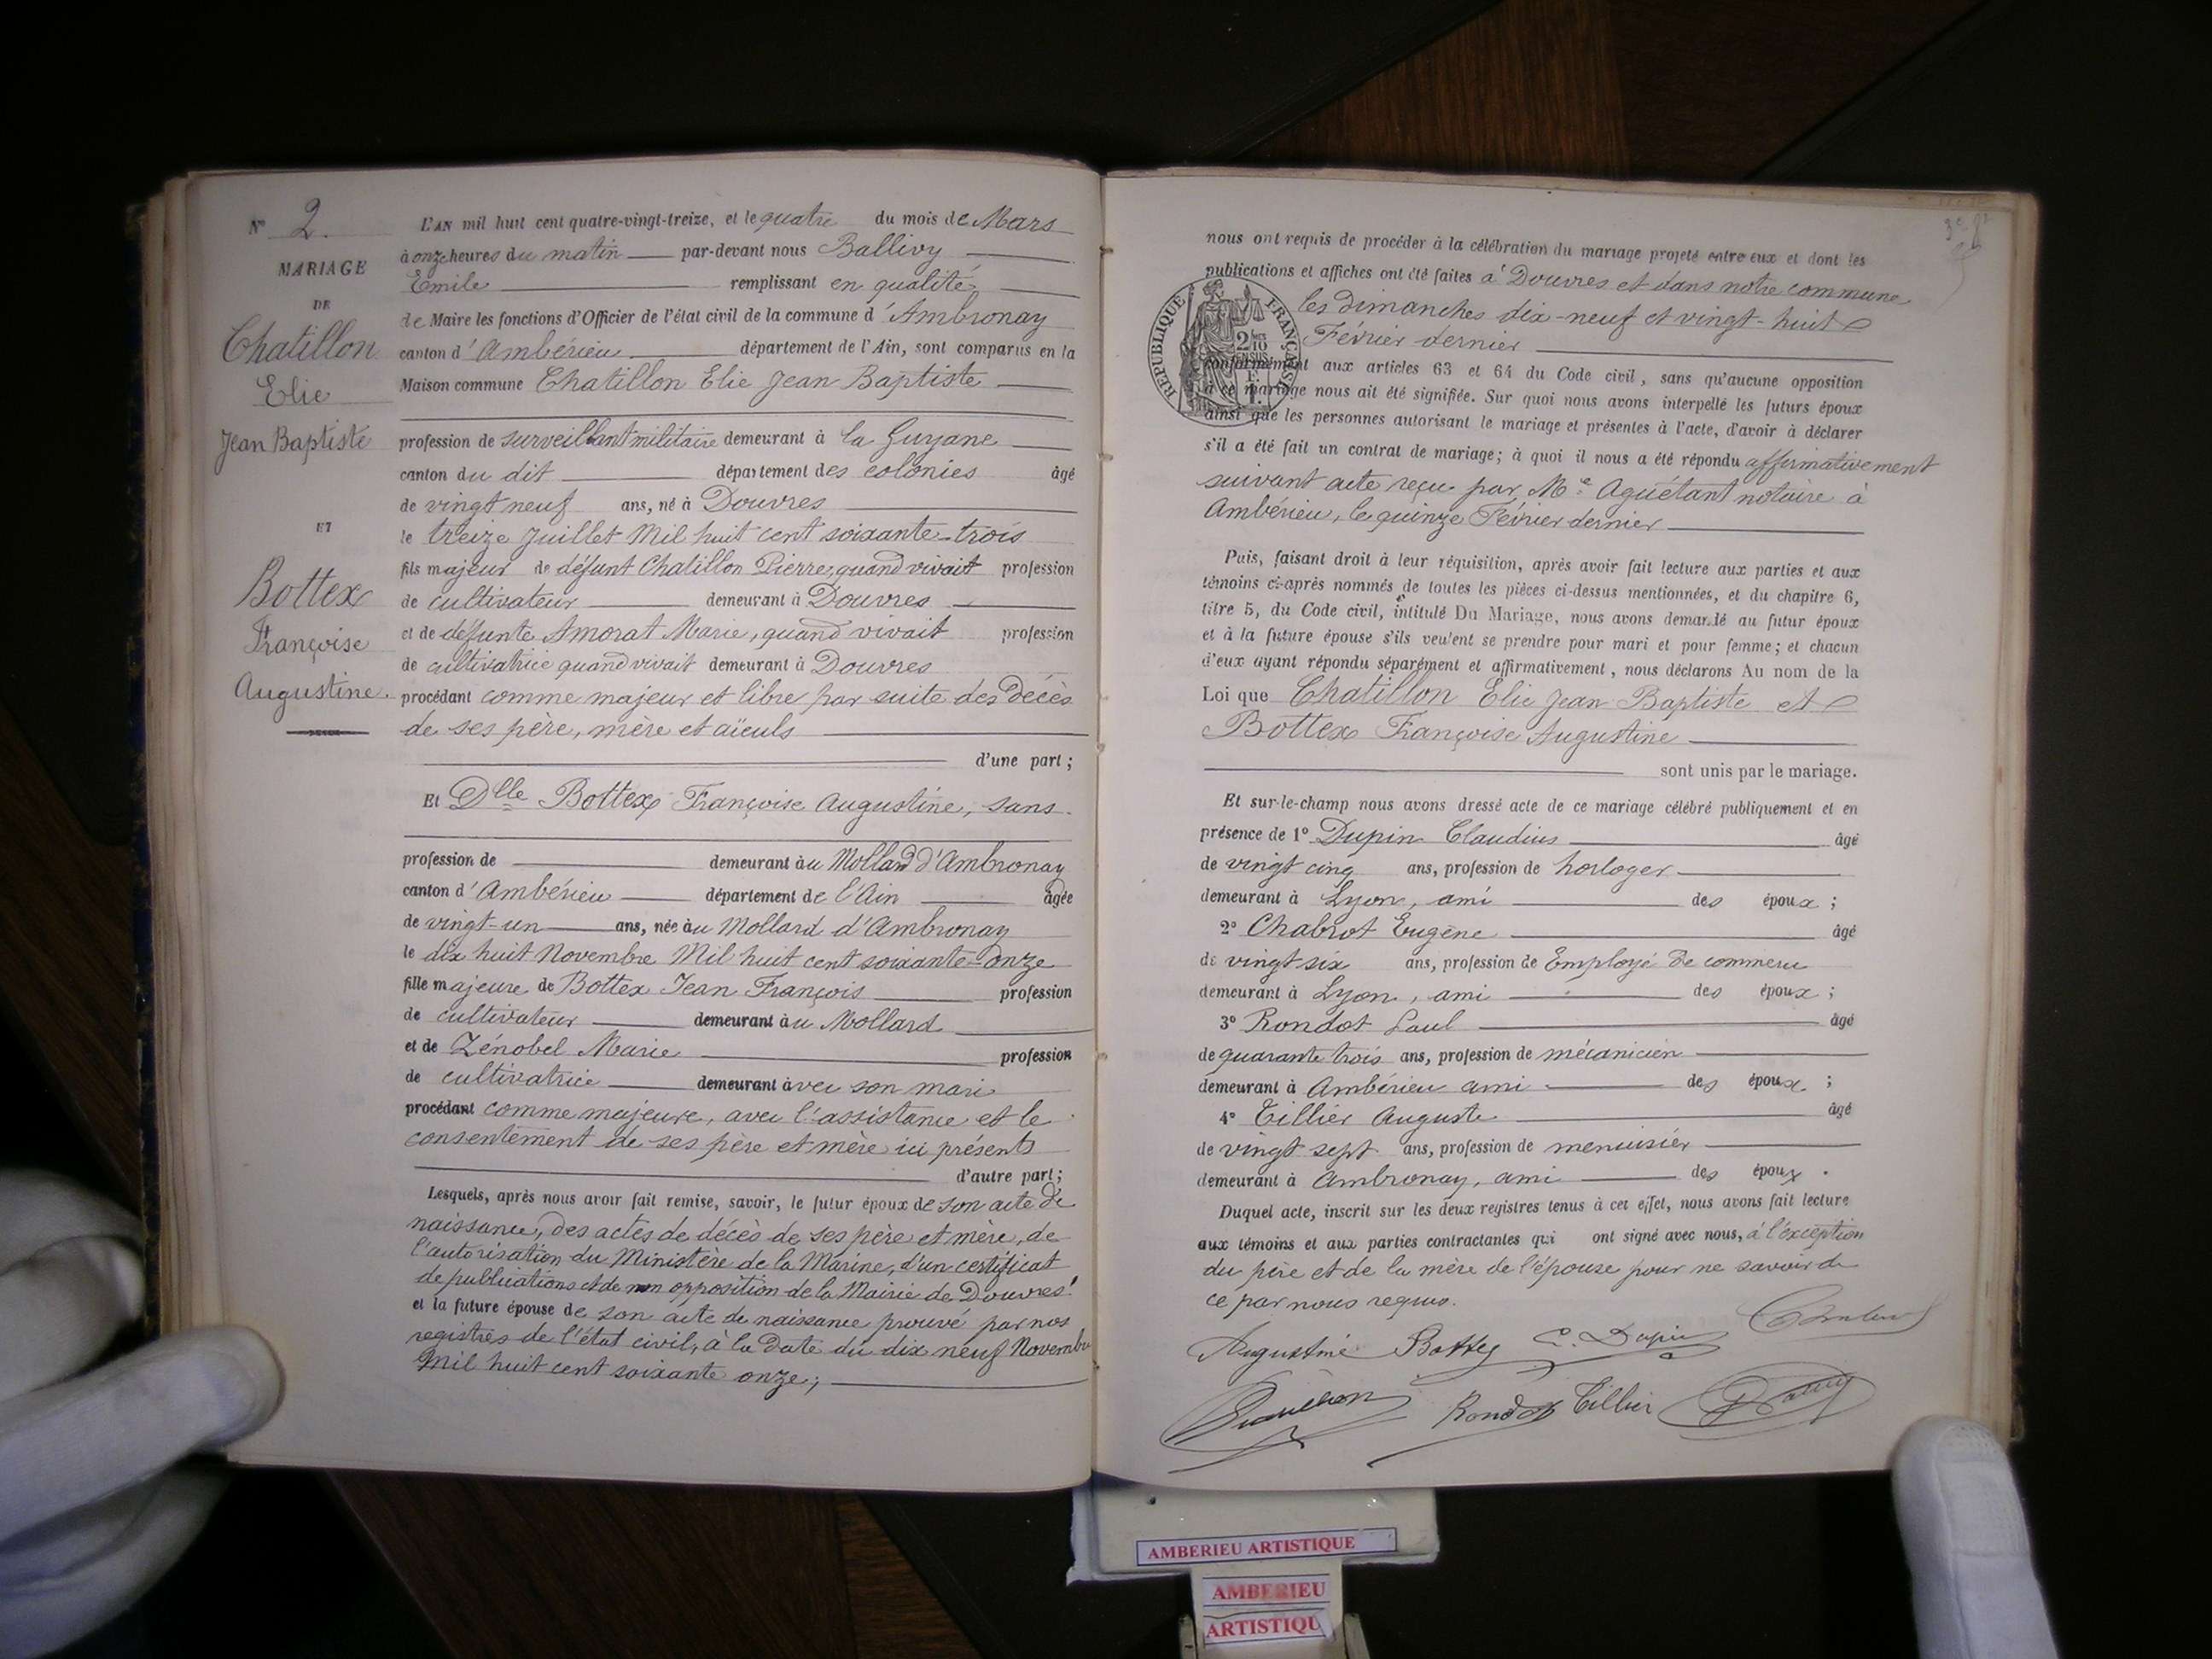 N° 2.
MARIAGE
DE
Chatillon
Elie
Jean Baptiste
ET
Bottex
Françoise
Augustine.
L'AN mil huit cent quatre-vingt-treize, et le quatre du mois de Mars
à onze heures du matin par-devant nous Ballivy
Emile remplissant en qualité
de Maire les fonctions d'Officier de l'état civil de la commune d'Ambronay
canton d'Ambérieu département de l'Ain, sont comparus en la
Maison commune Chatillon Elie Jean Baptiste
profession de surveillant militaire demeurant à la Guyane
canton du dit département des colonies âgé
de vingt neuf ans, né à Douvres
le treize Juillet Mil huit cent soixante-trois
fils majeur de défunt Chatillon Pierre, quand vivait profession
de cultivateur demeurant à Douvres
et de défunte Amorat Marie, quand vivait profession
de cultivatrice quand vivait demeurant à Douvres
procédant comme majeur et libre par suite des décès
de ses père, mère et aïeuls
d'une part ;
Et Dlle Bottex Françoise Augustine, sans
profession de demeurant au Mollard d'Ambronay
canton d'Ambérieu département de l'Ain âgée
de vingt-un ans, née au Mollard d'Ambronay
le dix huit Novembre Mil huit cent soixante-onze
fille majeure de Bottex Jean François profession
de cultivateur demeurant au Mollard
et de Zénobel Marie profession
de cultivatrice demeurant avec son mari
procédant comme majeure, avec l'assistance et le
consentement de ses père et mère ici présents
d'autre part ;
Lesquels, après nous avoir fait remise, savoir, le futur époux de son acte de
naissance, des actes de décès de ses père et mère, de
l'autorisation du Ministère de la Marine, d'un certificat
de publications et de non opposition de la Mairie de Douvres
et la future épouse de son acte de naissance prouvé par nos
registres de l'état civil, à la date du dix neuf Novembre
Mil huit cent soixante onze ;
nous ont requis de procéder à la célébration du mariage projeté entre eux et dont les
publications et affiches ont été faites à Douvres et dans notre commune
les dimanches dix-neuf et vingt-huit
Février dernier
RÉPUBLIQUE FRANÇAISE
conformément aux articles 63 et 64 du Code civil, sans qu'aucune opposition
à ce mariage nous ait été signifiée. Sur quoi nous avons interpellé les futurs époux
ainsi que les personnes autorisant le mariage et présentes à l'acte, d'avoir à déclarer
s'il a été fait un contrat de mariage ; à quoi il nous a été répondu affirmativement
suivant acte reçu par Me Aguétant notaire à
Ambérieu, le quinze Février dernier
Puis, faisant droit à leur réquisition, après avoir fait lecture aux parties et aux
témoins ci-après nommés de toutes les pièces ci-dessus mentionnées, et du chapitre 6,
titre 5, du Code civil, intitulé Du Mariage, nous avons demandé au futur époux
et à la future épouse s'ils veulent se prendre pour mari et pour femme ; et chacun
d'eux ayant répondu séparément et affirmativement, nous déclarons Au nom de la
Loi que Chatillon Elie Jean Baptiste et
Bottex Françoise Augustine
sont unis par le mariage.
Et sur-le-champ nous avons dressé acte de ce mariage célébré publiquement et en
présence de 1° Dupin Claudius âgé
de vingt cinq ans, profession de horloger
demeurant à Lyon, ami des époux ;
2° Chabrot Eugène âgé
de vingt six ans, profession de Employé de commerce
demeurant à Lyon, ami des époux ;
3° Rondot Paul âgé
de quarante trois ans, profession de mécanicien
demeurant à Ambérieu ami des époux ;
4° Tillier Auguste âgé
de vingt sept ans, profession de menuisier
demeurant à Ambronay, ami des époux .
Duquel acte, inscrit sur les deux registres tenus à cet effet, nous avons fait lecture
aux témoins et aux parties contractantes qui ont signé avec nous, à l'exception
du père et de la mère de l'épouse pour ne savoir de
ce par nous requis.
Augustine Bottex C. Dupin
Rondot Tillier
AMBERIEU ARTISTIQUE
AMBERIEU
ARTISTIQU